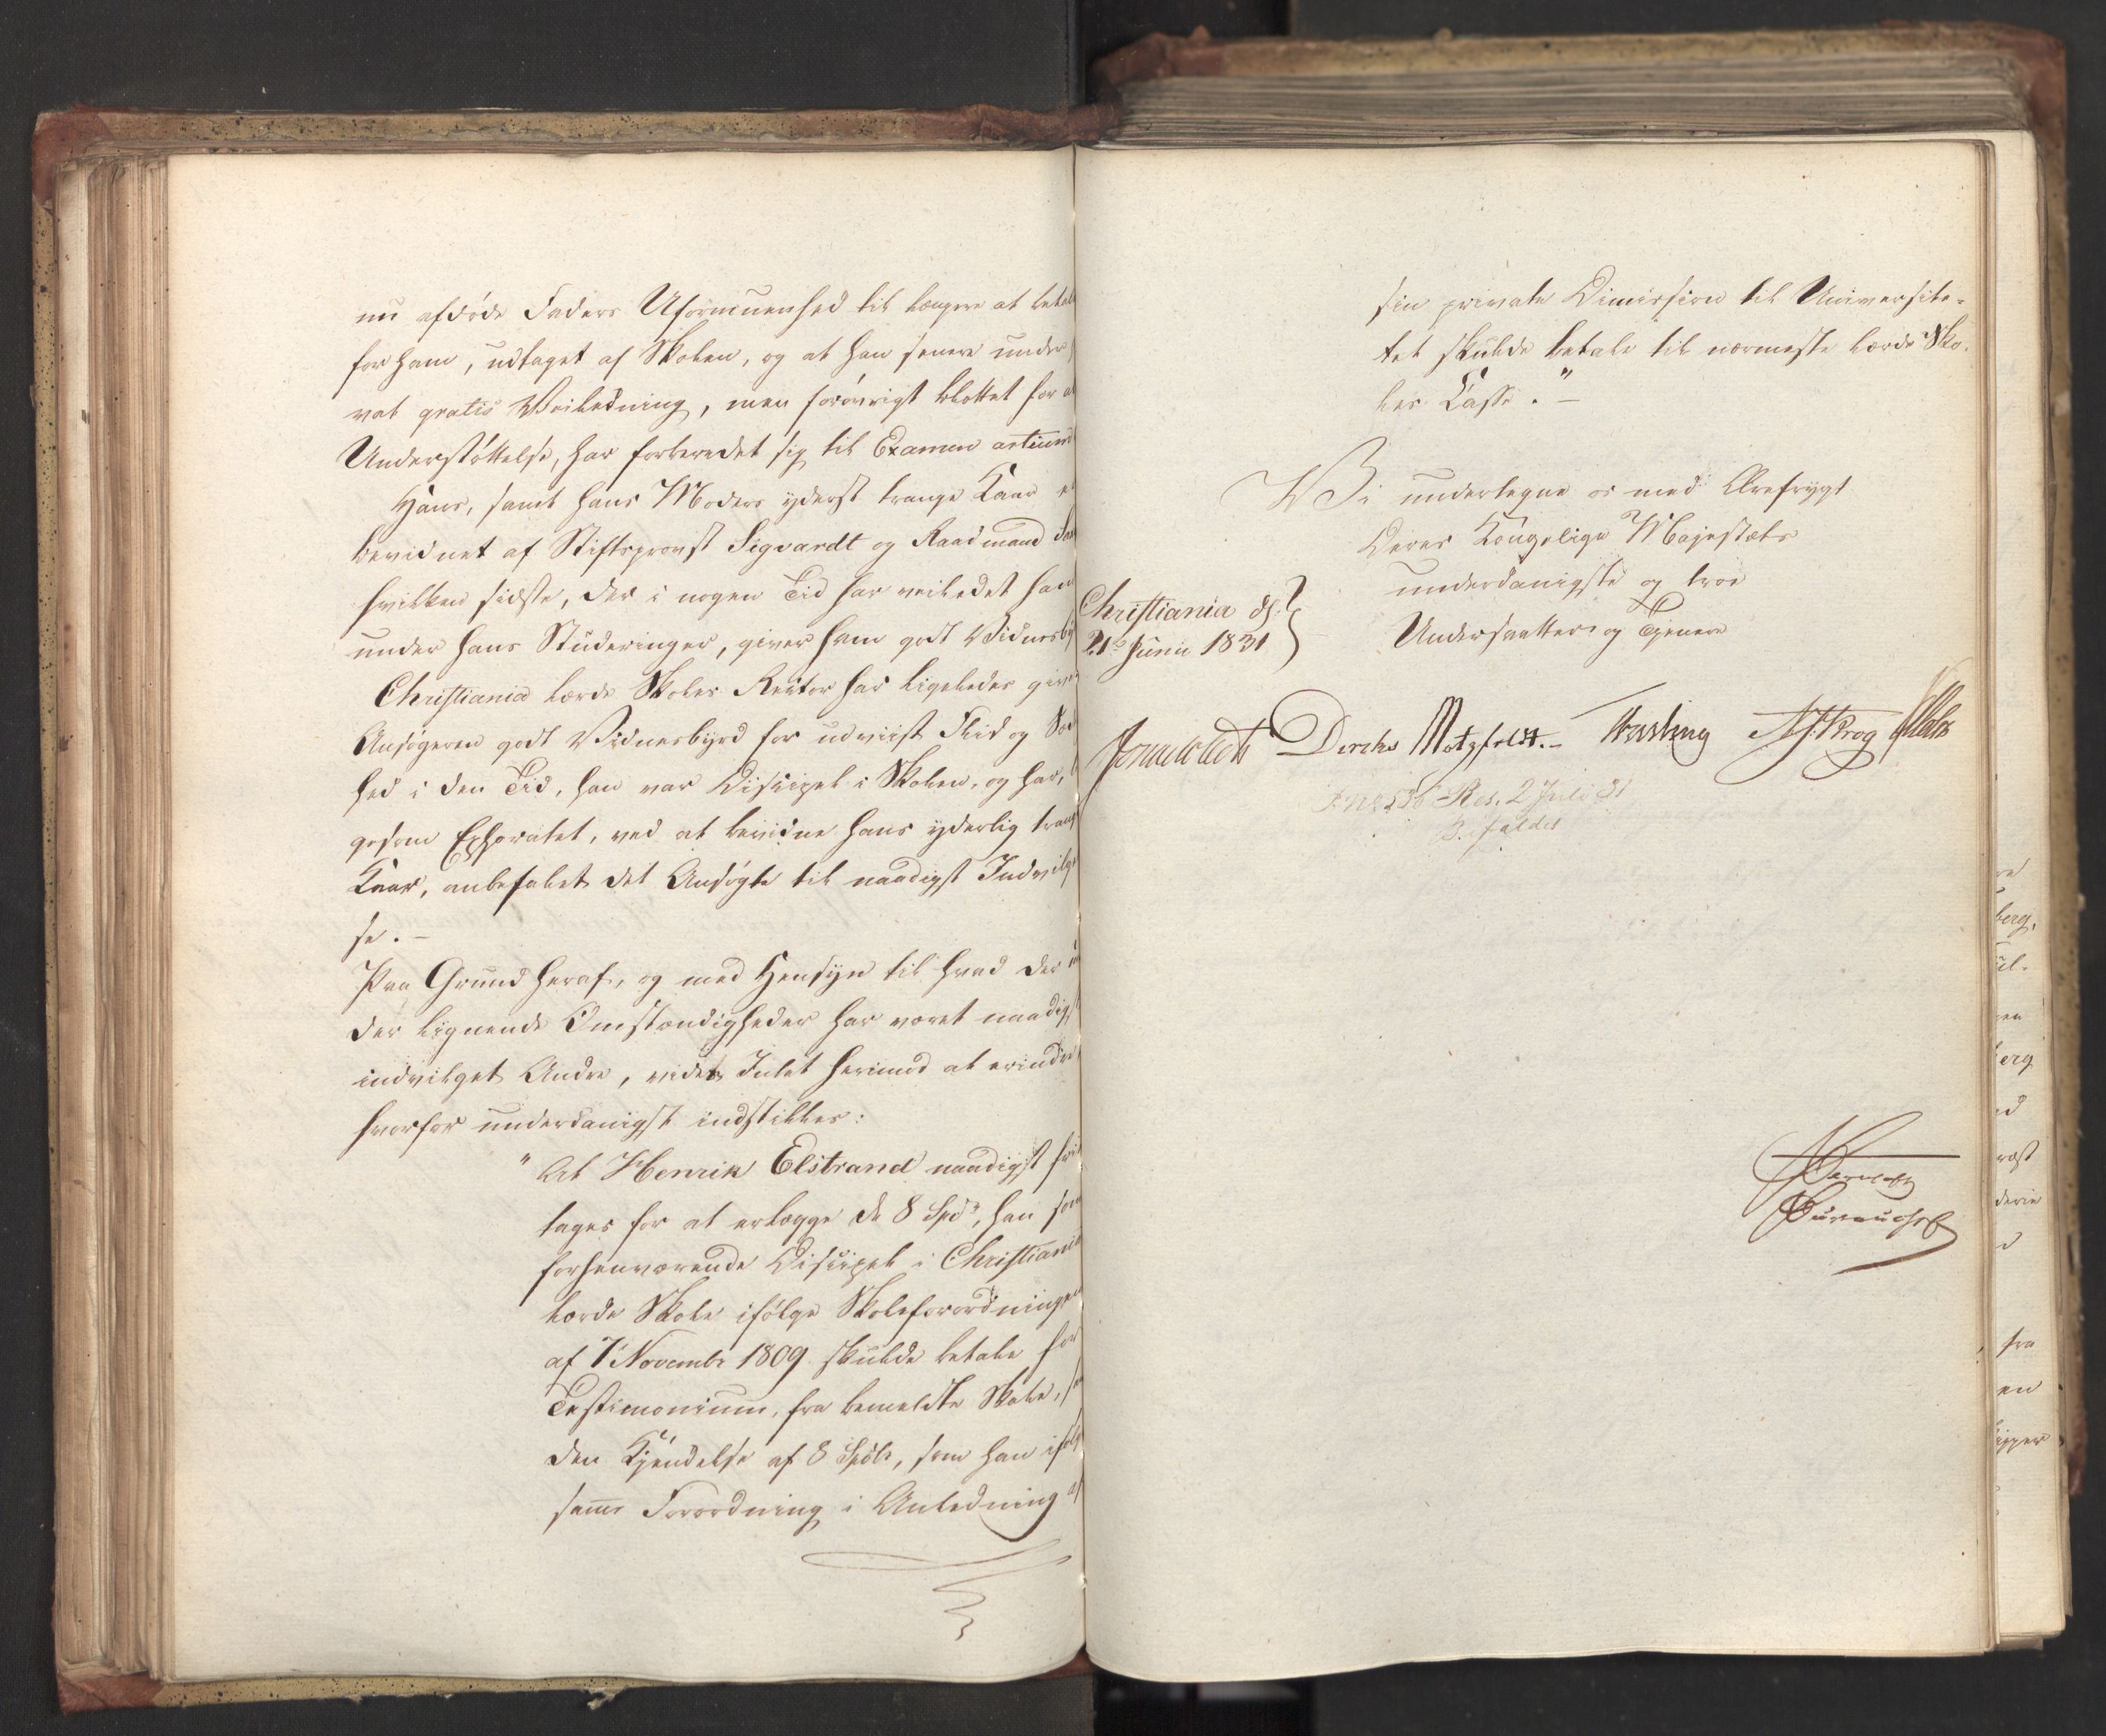 nu afdøde Faders Uformuenhed til længere at betale
for ham, udtaget af Skolen, og at han senere under
vat gratis Veiledning, men forøvrigt blottet for al
Understøttelse, har forberedet sig til Examen artium
Hans, samt hans Moders yderst trange Kaar er
bevidnet af Stiftsprovst Sigvardt og Raadmand
hvilken sidste, der i nogen Tid har veiledet ham
under hans Studeringer, giver ham godt Vidnesby
Christiania lærde Skoles Rector har ligeledes givet
Ansøgeren godt Vidnesbyrd for udviist Flid og Sæd
hed i den Tid, han var Discipel i Skolen, og har, li
gesom Ephoratet, ved at bevidne hans yderlig trange
Kaar, anbefalet det Ansøgte til naadigst Indvilgel
se. –
Paa Grund heraf, og med Hensyn til hvad der un
der lignende Omstændigheder har været naadigst
indvilget Andre, vides Intet herimod at erindre
hvorfor underdanigst indstilles:
"At Henrik Elstrand naadigst fri
tages for at erlægge de 8 Spd, han som
forhenværende Discipel i Christiania
lærde Skole ifølge Skoleforordningen
af 7 Novembr 1809 skulde betale for
Testimonium, fra bemeldte Skole, sa
den Kjendelse af 8 Spdlr, som han ifølge
samme Forordning i Anledning af
sin private Dimission til Universite-
tet skulde betale til nærmeste lærde Sko-
les Casse." –
Vi undertegne os med Ærefrygt
Deres Kongelige Majestæts
underdanigste og troe
Undersaatter og Tjenere
Christiania d.
21 Junii 1831
Diriks Motzfeldt. – Krog
Res. 2 Juli 31
Bifaldes